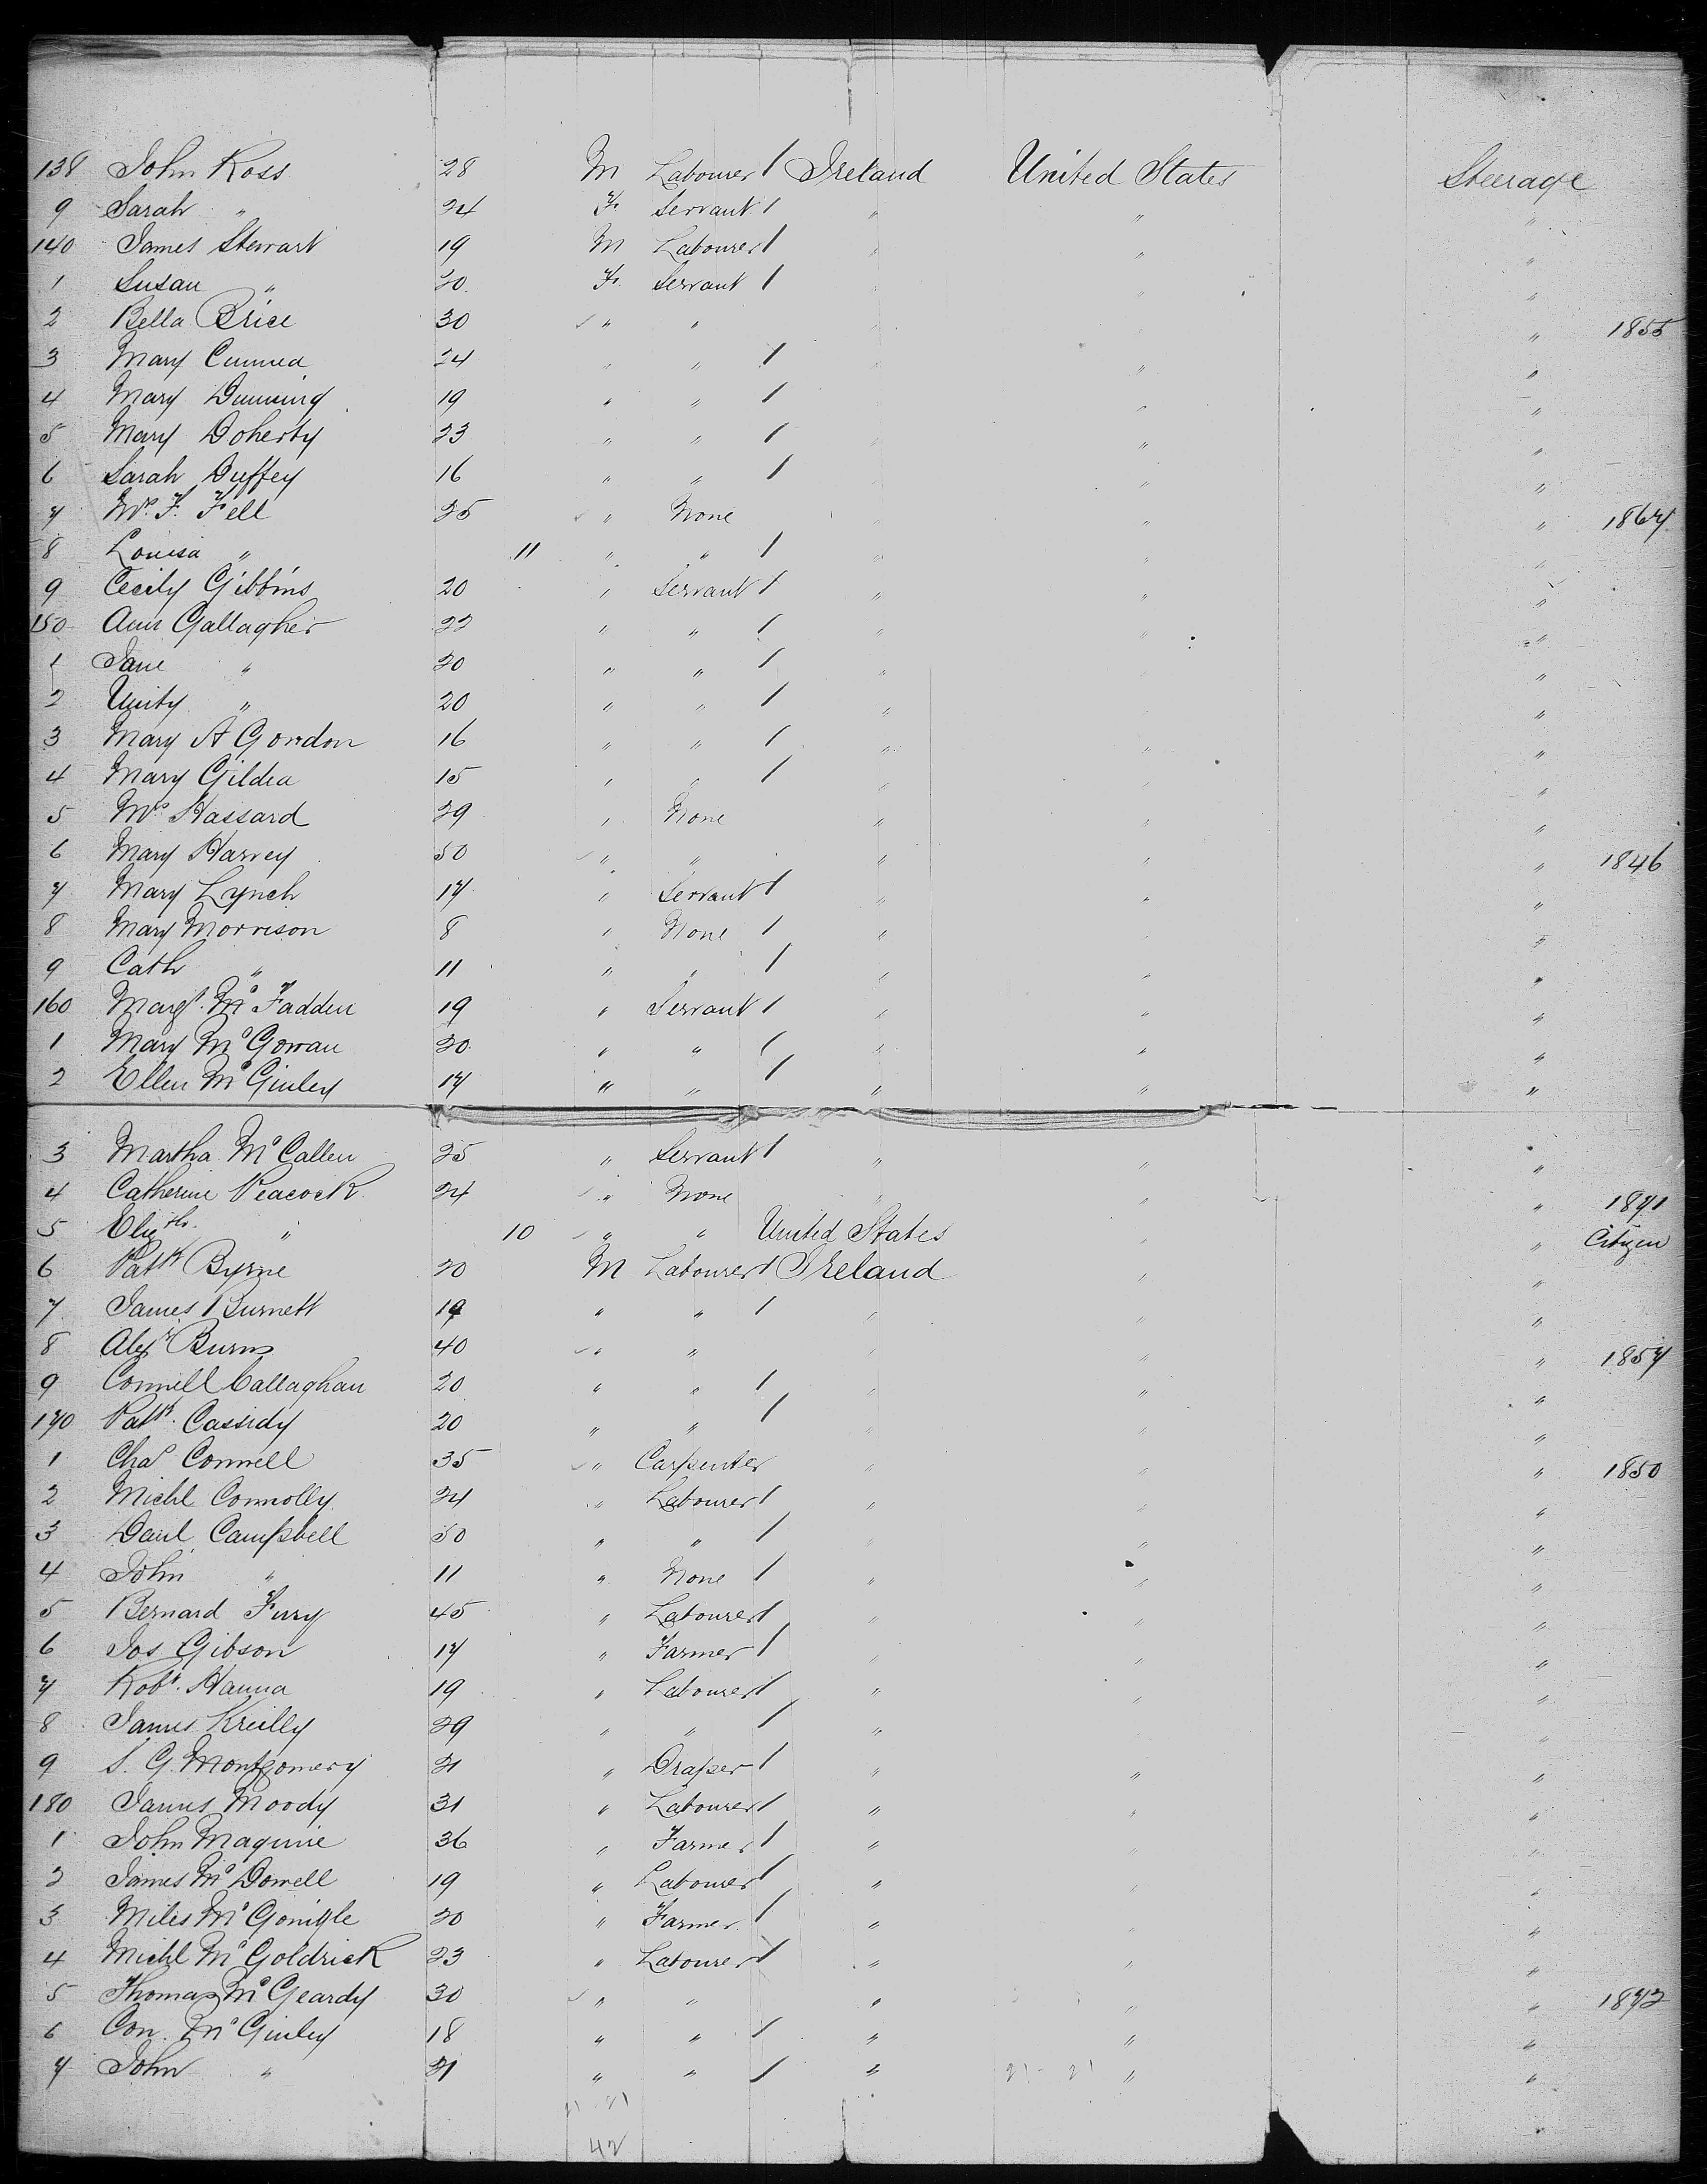 138 John Ross 28 M Labourer 1 Ireland United States Steerage
9 Sarah " 24 F. Servant 1 " " "
140 James Stewart 19 M Labourer 1 " " "
1 Susan " 20 F. Servant 1 " "
2 Bella Brice 30 ✓ " " " 1855
3 Mary Cunnea 24 " " 1 " "
4 Mary Dunning 19 " " 1 " "
5 Mary Doherty 23 " " 1 " "
6 Sarah Duffey 16 " " 1 " "
7 Mrs. F. Fell 25 ✓ " None " " 1867
8 Louisa " 11 " " 1 " "
9 Cecily Gibbins 20 " Servant 1 " " "
150 Ann Gallagher 22 " " 1 " "
1 Jane " 20 " " 1 " "
2 Unity " 20 " " 1 " "
3 Mary A Gordon 16 " " 1 " " "
4 Mary Gildea 15 " " 1 " "
5 Mrs Hassard 29 " None " " "
6 Mary Harvey 50 ✓ " " " " " 1846
7 Mary Lynch 17 " Servant 1 " " "
8 Mary Morrison 8 " None 1 " "
9 Cath " 11 " " 1 " " "
160 Margt. Mc Fadden 19 " Servant 1 " " "
1 Mary McGowan 20 " " 1 " " "
2 Ellen McGinley 17 " " 1 " " "
3 Martha McCallen 25 " Servant 1 " " "
4 Catherine Peacock 24 ✓ " None " " " 1871
5 Elizth. " 10 ✓ " " United States " " Citizen
6 Patk Byrne 20 M Labourer 1 Ireland " "
7 James Burnett 19 " " 1 " " "
8 Alexr Burns 40 ✓ " " " " " 1857
9 Connell Callaghan 20 " " 1 " " "
170 Patk. Cassidy 20 " " 1 " " "
1 Chas Connell 35 ✓ " Carpenter " " " 1850
2 Michl Connolly 24 " Labourer 1 " " "
3 Danl Campbell 50 " " 1 " " "
4 John " 11 " None 1 " " "
5 Bernard Fury 45 " Labourer 1 " " "
6 Jos Gibson 17 " Farmer 1 " " "
7 Robt. Hanna 19 " Labourer 1 " " "
8 James Kreilly 29 " " 1 " "
9 S. G. Montgomery 21 " Draper 1 " " "
180 James Moody 31 " Labourer 1 " " "
1 John Maguire 36 " Farmer 1 " "
2 James McDowell 19 " Labourer 1 " "
3 Miles McGonigle 20 " Farmer 1 " "
4 Michl McGoldrick 23 " Labourer 1 " " "
5 Thomas McGeardy 30 ✓ " " " " " 1872
6 Con. McGinley 18 " " 1 " " "
7 John " 21 " " 1 " 21 - 21 " "
21 21
42